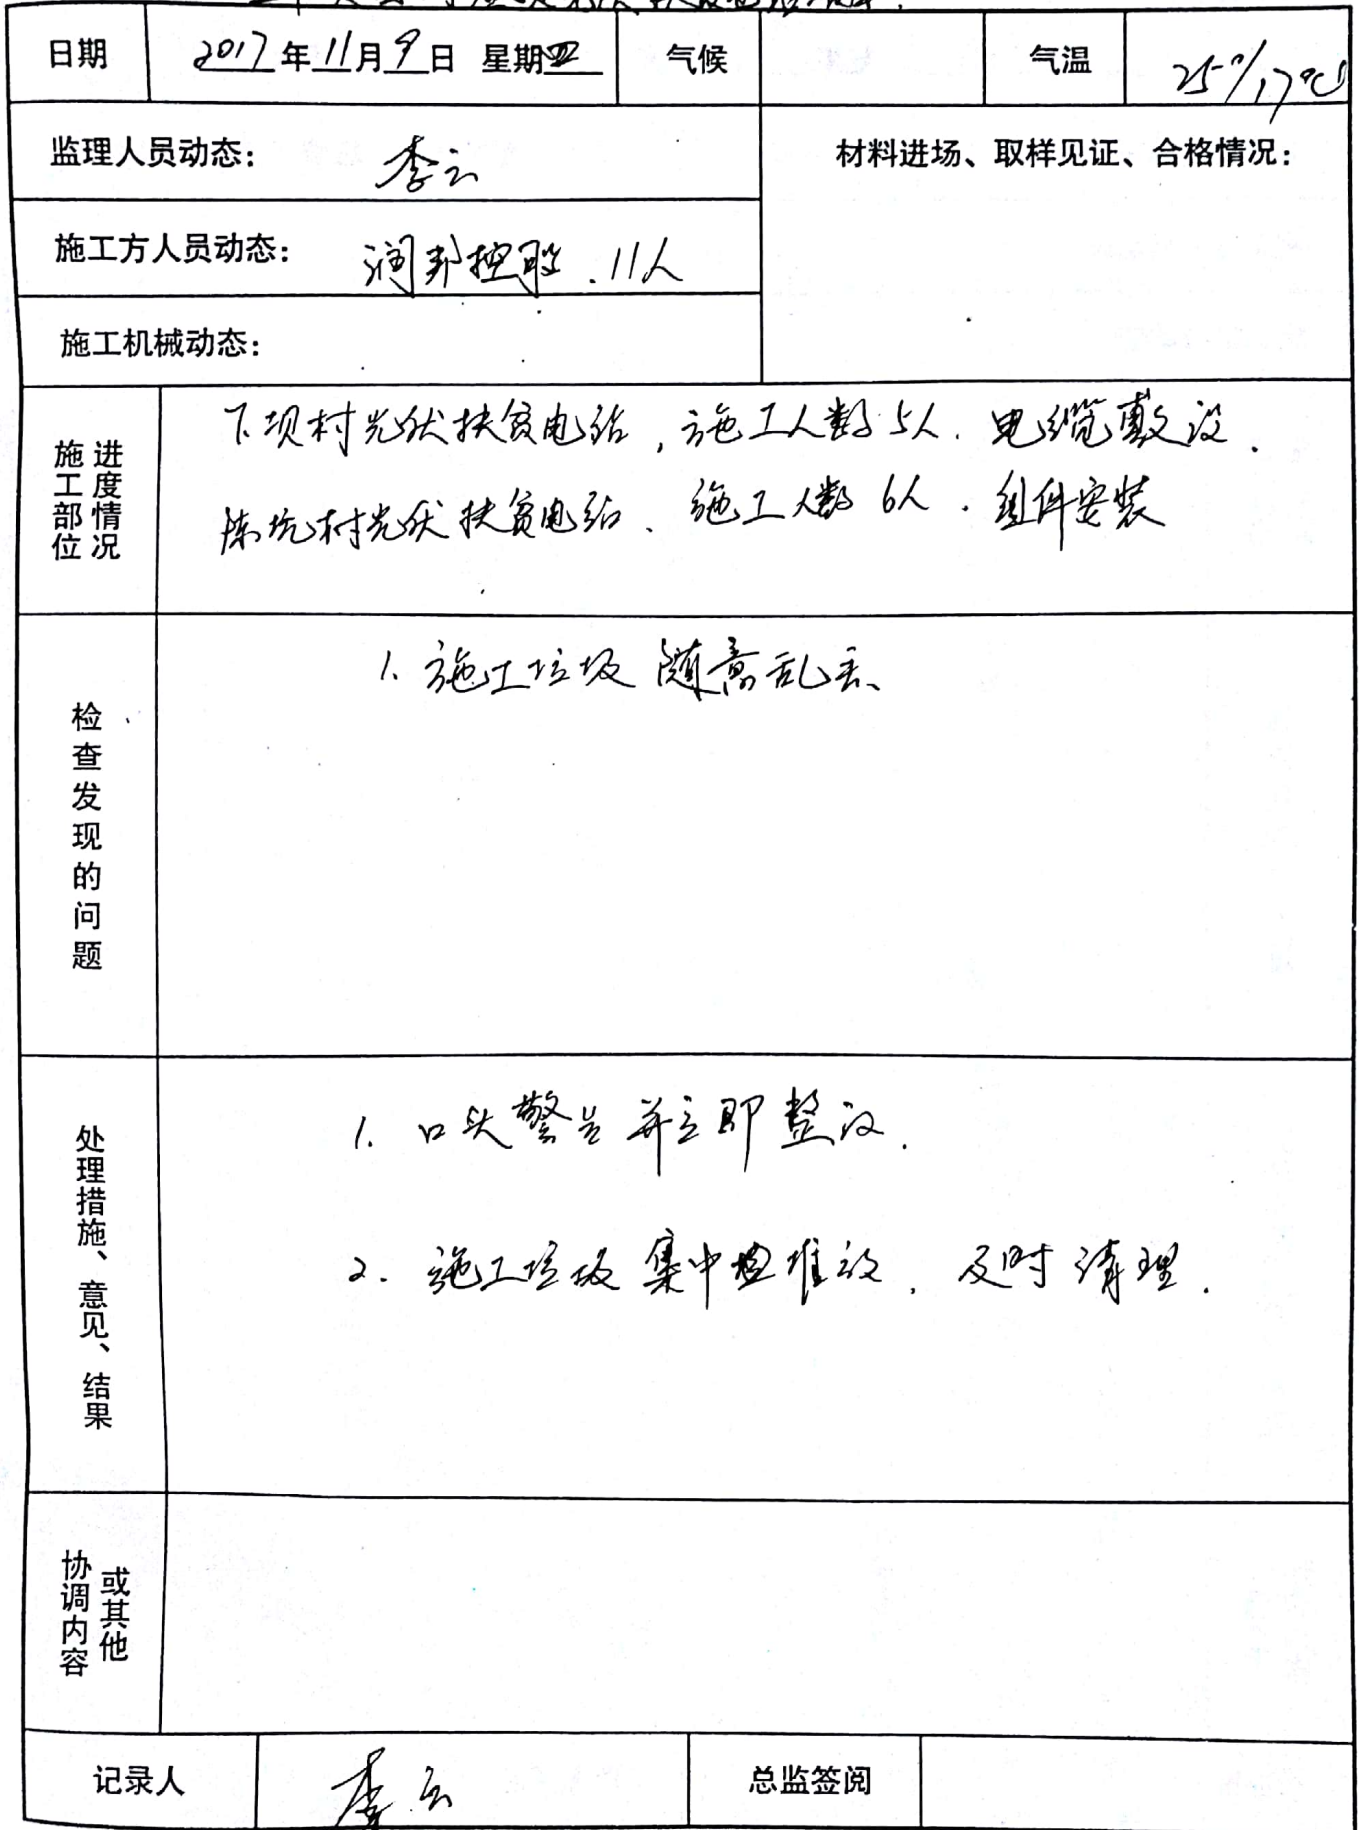 日期 2017年11月9日 星期四 气候 气温 25°/17℃
监理人员动态: 李云
材料进场、取样见证、合格情况:
施工方人员动态: 润邦控股.11人
施工机械动态:
施工部位
进度情况
下坝村光伏扶贫电站,施工人数5人.电缆敷设.
陈坑村光伏扶贫电站、施工人数6人.组件安装
检查发现的问题
1.施工垃圾随意乱丢、
处理措施、意见、结果
1.口头警告并立即整改.
2.施工垃圾集中堆放,及时清理.
协调内容
或其他
记录人 李云 总监签阅